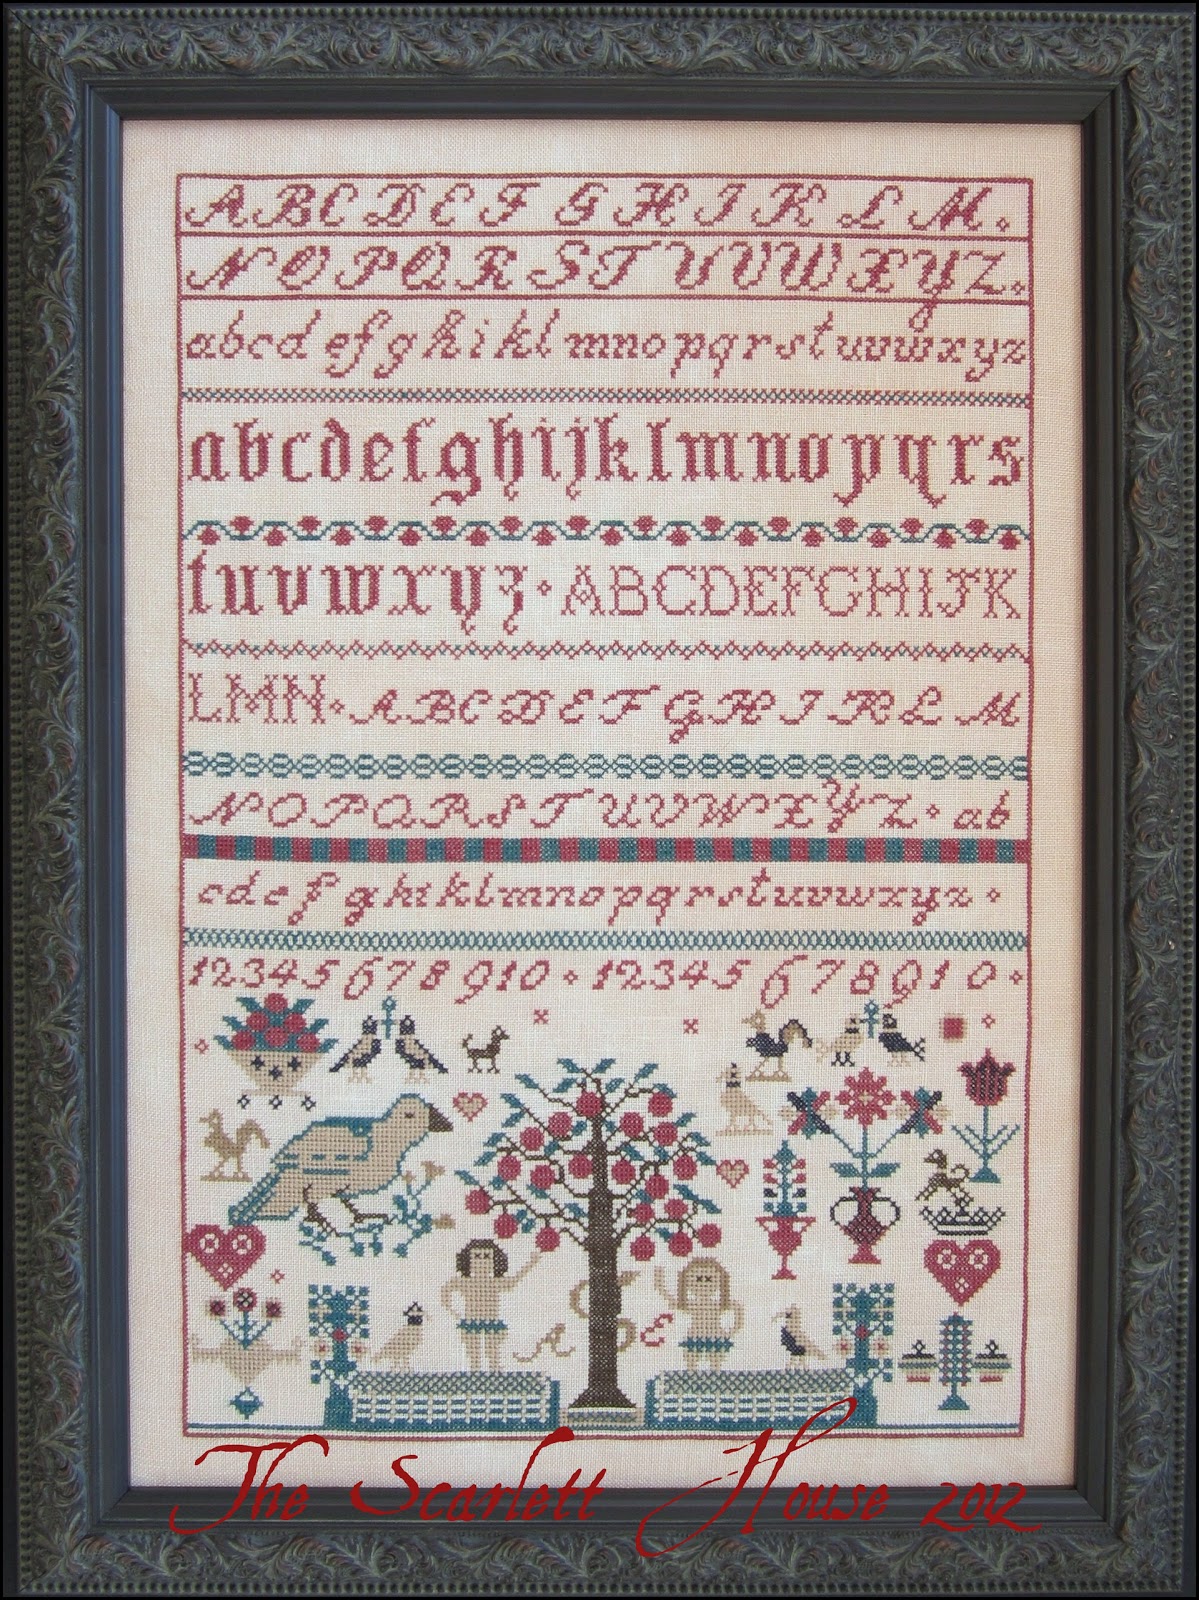 A B C D E F G H I K L M.
N O P Q R S T U V W X Y Z.
a b c d e f g h i k l m n o p q r s t u v w x y z
a b c d e f g h i j k l m n o p q r s
t u v w x y z · A B C D E F G H I J K
L M N · A B C D E F G H I K L M
N O P Q R S T U V W X Y Z · a b
c d e f g h i k l m n o p q r s t u v w x y z ·
1 2 3 4 5 6 7 8 9 10 · 1 2 3 4 5 6 7 8 9 1 0 ·
A E
The Scarlett House 2012